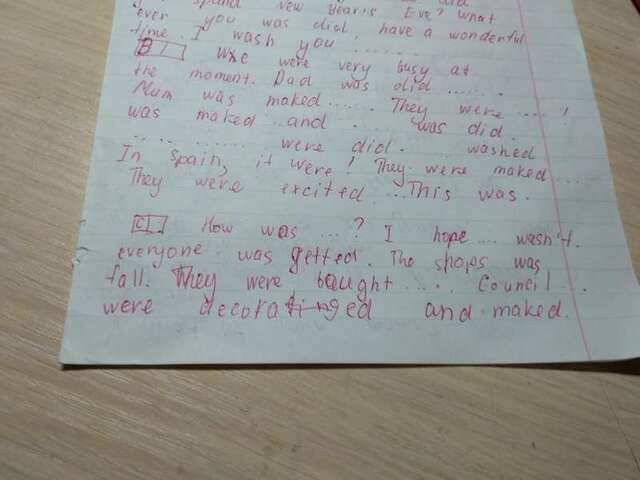 spend New Year's Eve? What
ever you was did, have a wonderful
time. I wash you
B were very busy at
the moment. Dad was did .....
was maked.... They were ......!
was maked and ... was did
were did. washed
In Spain, it were, They were maked
They were excited. This was....
C How was ...? I hope ... wasn't.
everyone was getted. The shops was
fall. They were bought .... Council ...
were and maked.